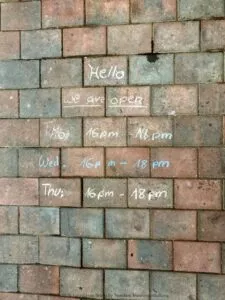 Hello
we are open
Mo, 16pm - 18pm
Wed. 16pm - 18pm
Thu, 16pm - 18pm